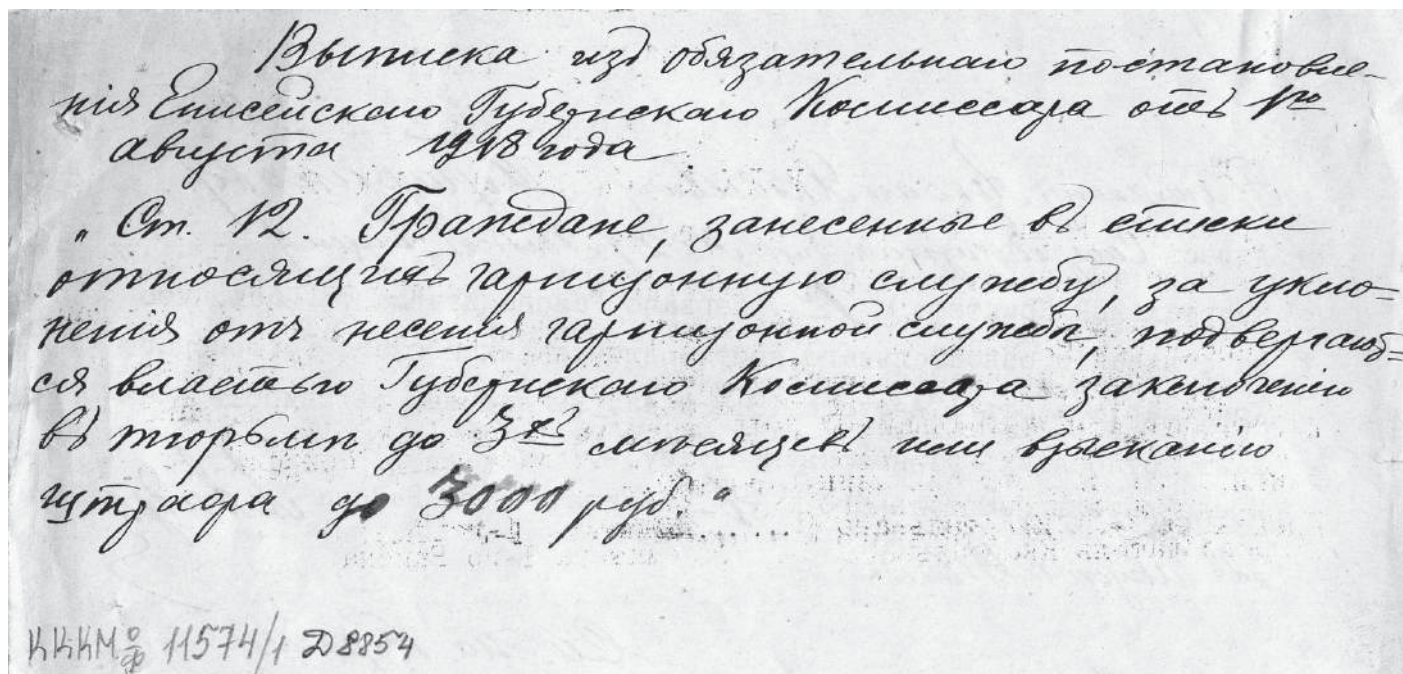 Выписка изъ обязательнаго постановле-
нія Енисейскаго Губернскаго Комиссара отъ 1го
августа 1918 года
„Ст. 12. Граждане, занесенные въ списки
относящихъ гарнизонную службу, за укло-
ненія отъ несенія гарнизонной службы, подвергают-
ся властью Губернскаго Комиссара заключенію
въ тюрьмѣ до 3хъ мѣсяцевъ или взысканію
штрафа до 3000 руб."
КККМ о/ф 11574/1 Д 8854